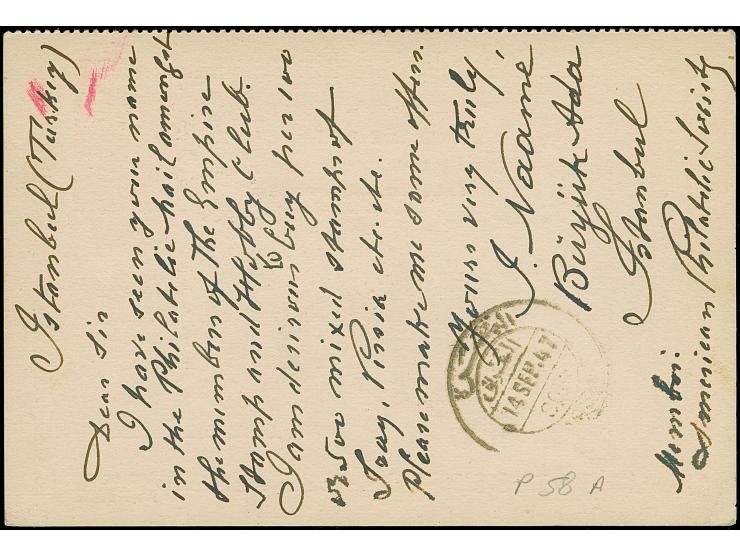 Istanbul (Turkey)
Dear Sir
I have seen your name
in the Philatelic mail amongst
the members of the Empire
Stamp and Hobby Club.
I am desirous to buy per 100
or 500 mixed stamps of
Iraq, Persia etc. etc.
Please make me some offers.
Yours very truly,
J. Naamé
Büyük Ada
Istanbul
Member:
American Philatelic Society
14 SEP. 47
P 58 A